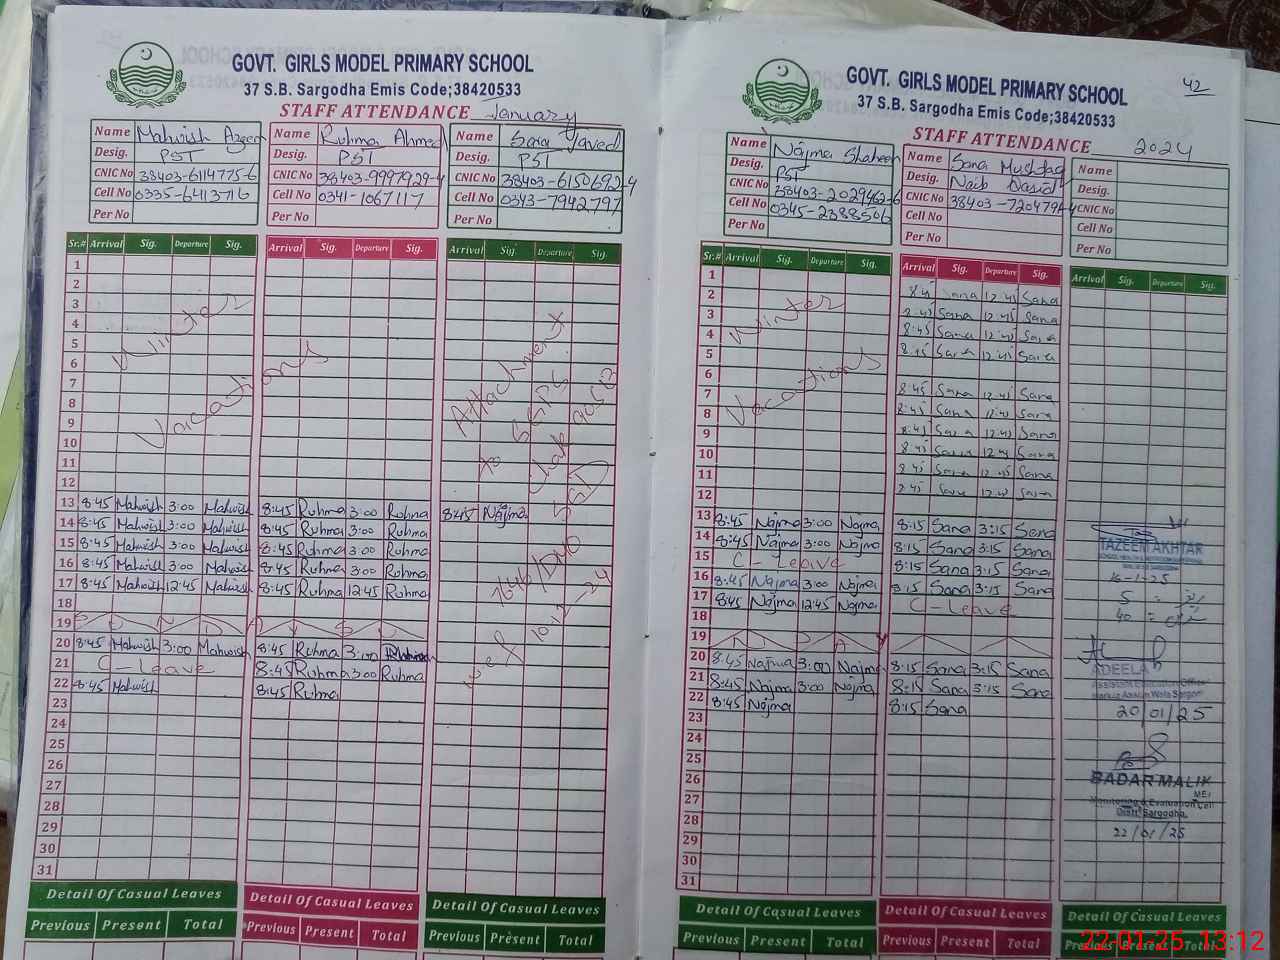 GOVT. GIRLS MODEL PRIMARY SCHOOL
37 S.B. Sargodha Emis Code;38420533
STAFF ATTENDANCE January
Name Mahwish Azeem Name Ruhma Ahmed Name Sara Javed
Desig. PST Desig. PST Desig. PST
CNIC No 38403-6114775-6 CNIC No 38403-9997929-4 CNIC No 38403-6150692-4
Cell No 0335-6413716 Cell No 0341-1067117 Cell No 0343-7942797
Per No Per No Per No
Sr.# Arrival Sig. Departure Sig. Arrival Sig. Departure Sig. Arrival Sig. Departure Sig.
1
2
3
4
5
6
7
8
9
10
11
12
Winter
Vacations
Attachment
to GGPS
Chak 90SB
SGD
7646/DMO
10-12-24
13 8:45 Mahwish 3:00 Mahwish 8:45 Ruhma 3:00 Ruhma 8:45 Najma
14 8:45 Mahwish 3:00 Mahwish 8:45 Ruhma 3:00 Ruhma
15 8:45 Mahwish 3:00 Mahwish 8:45 Ruhma 3:00 Ruhma
16 8:45 Mahwish 3:00 Mahwish 8:45 Ruhma 3:00 Ruhma
17 8:45 Mahwish 12:45 Mahwish 8:45 Ruhma 12:45 Ruhma
18
19 S U N D A Y
20 8:45 Mahwish 3:00 Mahwish 8:45 Ruhma 3:00 Ruhma
21 C-Leave 8:45 Ruhma 3:00 Ruhma
22 8:45 Mahwish 8:45 Ruhma
23
24
25
26
27
28
29
30
31
Detail Of Casual Leaves Detail Of Casual Leaves Detail Of Casual Leaves
Previous Present Total Previous Present Total Previous Present Total
42
GOVT. GIRLS MODEL PRIMARY SCHOOL
37 S.B. Sargodha Emis Code;38420533
STAFF ATTENDANCE 2024
Name Najma Shaheen Name Sana Mushtaq Name
Desig. PST Desig. Naib Qasid Desig.
CNIC No 38403-2029462-6 CNIC No 38403-7204794-4 CNIC No
Cell No 0345-2388506 Cell No Cell No
Per No Per No Per No
Sr.# Arrival Sig. Departure Sig. Arrival Sig. Departure Sig. Arrival Sig. Departure Sig.
1
2 8:45 Sana 12:45 Sana
3 8:45 Sana 12:45 Sana
4 8:45 Sana 12:45 Sana
5 8:15 Sana 12:45 Sana
6
7 8:45 Sana 12:45 Sana
8 8:45 Sana 12:45 Sana
9 8:45 Sana 12:45 Sana
10 8:45 Sana 12:45 Sana
11 8:45 Sana 12:45 Sana
12 8:45 Sana 12:45 Sana
Winter
Vacations
13 8:45 Najma 3:00 Najma 8:15 Sana 3:15 Sana
14 8:45 Najma 3:00 Najma 8:15 Sana 3:15 Sana
15 C-Leave 8:15 Sana 3:15 Sana
16 8:45 Najma 3:00 Najma 8:15 Sana 3:15 Sana
17 8:45 Najma 12:45 Najma C-Leave
18
19 N D A Y
20 8:45 Najma 3:00 Najma 8:15 Sana 3:15 Sana
21 8:45 Najma 3:00 Najma 8:15 Sana 3:15 Sana
22 8:45 Najma 8:15 Sana
23
24
25
26
27
28
29
30
31
TAZEEM AKHTAR
16-1-25
5 =
40 =
ADEELA
Assistant Education Officer
20/01/25
BADAR MALIK
MEA
Monitoring & Evaluation Cell
Distt. Sargodha.
22/01/25
Detail Of Casual Leaves Detail Of Casual Leaves Detail Of Casual Leaves
Previous Present Total Previous Present Total Previous Present Total
22-01-25 13:12